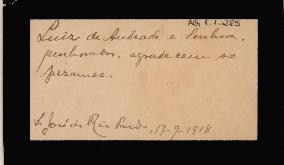 AG 1.1.285
Luiz de Andrade e Senhora,
penhorados, agradecem os
pezames.
S. José do Rio Pardo, 17-9-1918.